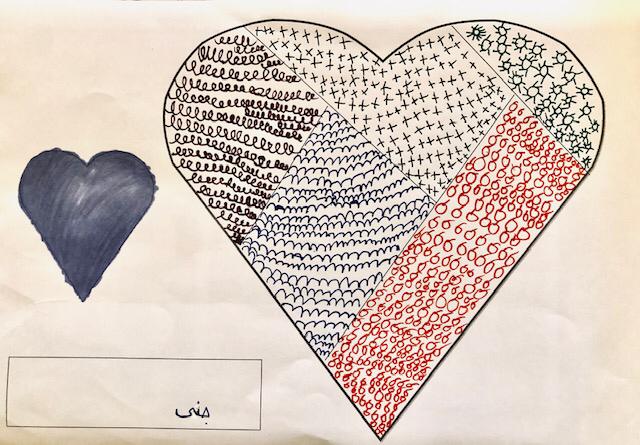 جنى